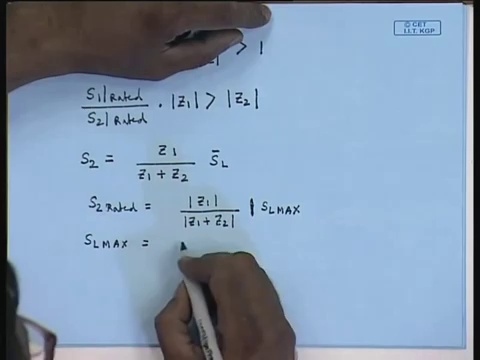 © CET
I.I.T. KGP
> 1
S1|Rated / S2|Rated . |Z1| > |Z2|
S2 = Z1 / (Z1 + Z2) S̄L
S2 Rated = |Z1| / |Z1 + Z2| | SLMAX
SLMAX =